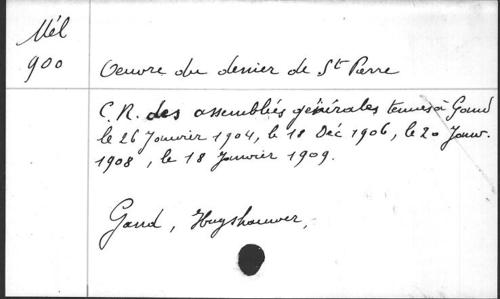 Mél
900
Oeuvre du denier de St Pierre
C.R. des assemblées générales tenues à Gand
le 26 Janvier 1904, le 18 Déc 1906, le 20 Janv.
1908, le 18 Janvier 1909.
Gand, Huyshauwer,